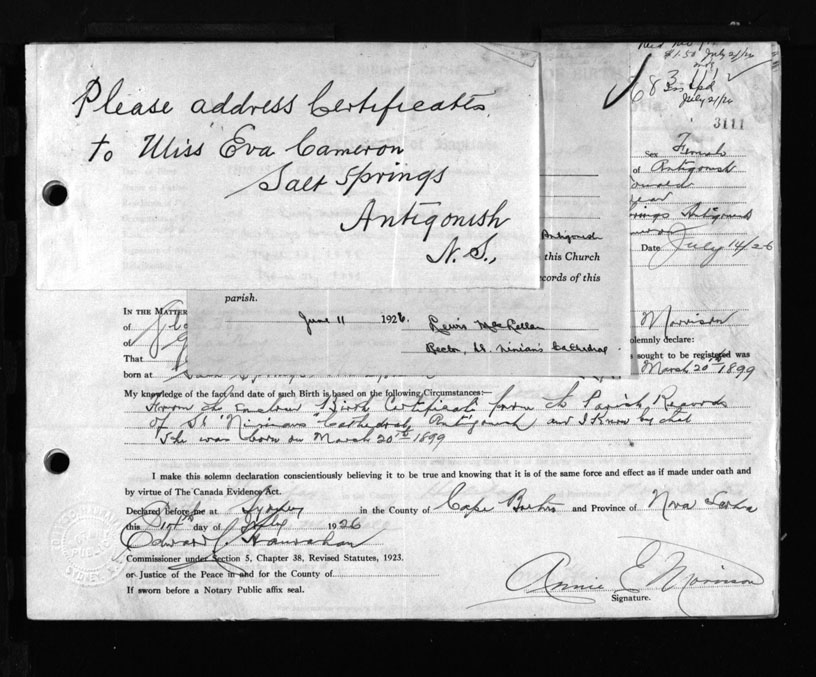 Please address Certificates
to Miss Eva Cameron
Salt Springs
Antigonish
N.S.,
$1.50 July 21/26
683
July 21/26
3111
Sex Female
of Antigonish
Springs Antigonish
Date July 14/26
Antigonish
this Church
records of this
parish.
June 11 1926. Lewis MacLellan
Rector, St. Ninian's Cathedral
IN THE MATTER
of
of
Morrison
solemnly declare:
That
sought to be registered was
born at Springs March 20th 1899
My knowledge of the fact and date of such Birth is based on the following Circumstances:—
From the enclosed "Birth Certificate" from the Parish Records
of St "Ninians" Cathedral, Antigonish and I know by that
She was born on March 20th 1899
I make this solemn declaration conscientiously believing it to be true and knowing that it is of the same force and effect as if made under oath and
by virtue of The Canada Evidence Act.
Declared before me at Sydney in the County of Cape Breton and Province of Nova Scotia
this day of July 1926
Edward Hanrahan
Commissioner under Section 5, Chapter 38, Revised Statutes, 1923.
or Justice of the Peace in and for the County of
If sworn before a Notary Public affix seal.
Annie E Morrison
Signature.